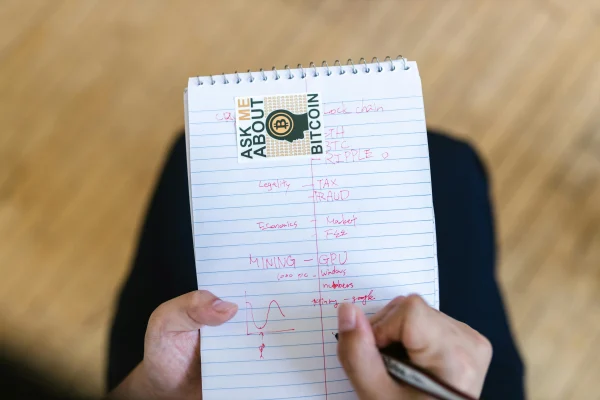 ASK ME
ABOUT
BITCOIN
Block chain
ETH
BTC
RIPPLE
Legality - TAX
FRAUD
Economics - Market
MINING - GPU
Windows
numbers
mining - google